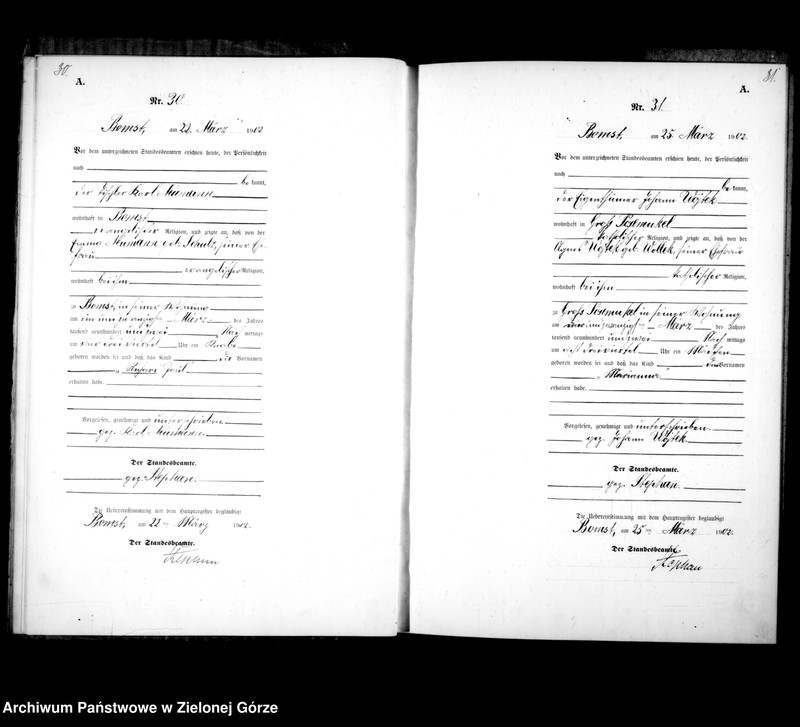 30.
A.
Nr. 30
Bomst, am 22 März 1902
Vor dem unterzeichneten Standesbeamten erschien heute, der Persönlichkeit
nach
be kannt,
der Karl Neumann
wohnhaft in Bomst
evangelischer Religion, und zeigte an, daß von der
Emma Neumann geb. Schulz, seiner Ehe-
frau
evangelischer Religion,
wohnhaft bei ihm
zu Bomst, in seiner Wohnung
am März des Jahres
tausend neunhundert und zwei Nach mittags
um drei viertel Uhr ein Knabe
geboren worden sei und daß das Kind die Vornamen
erhalten habe.
Vorgelesen, genehmigt und unterschrieben
gez. Karl Neumann.
Der Standesbeamte.
gez. Stephan.
Die Uebereinstimmung mit dem Hauptregister beglaubigt
Bomst, am 22 ten März 1902.
Der Standesbeamte.
Stephan
31.
A.
Nr. 31
Bomst, am 25 März 1902.
Vor dem unterzeichneten Standesbeamten erschien heute, der Persönlichkeit
nach
be kannt,
der Eigenthümer Johann Wojtek
wohnhaft in Gross Posemukel
katholischer Religion, und zeigte an, daß von der
Agnes Wojtek geb. seiner Ehefrau
katholischer Religion,
wohnhaft bei ihm
zu Gross Posemukel in seiner Wohnung
am März des Jahres
tausend neunhundert und zwei Nach mittags
um drei viertel Uhr ein Mädchen
geboren worden sei und daß das Kind den Vornamen
"Marianna"
erhalten habe.
Vorgelesen, genehmigt und unterschrieben.
gez. Johann Wojtek
Der Standesbeamte.
gez. Stephan.
Die Uebereinstimmung mit dem Hauptregister beglaubigt
Bomst, am 25 ten März 1902.
Der Standesbeamte.
Stephan
Archiwum Państwowe w Zielonej Górze